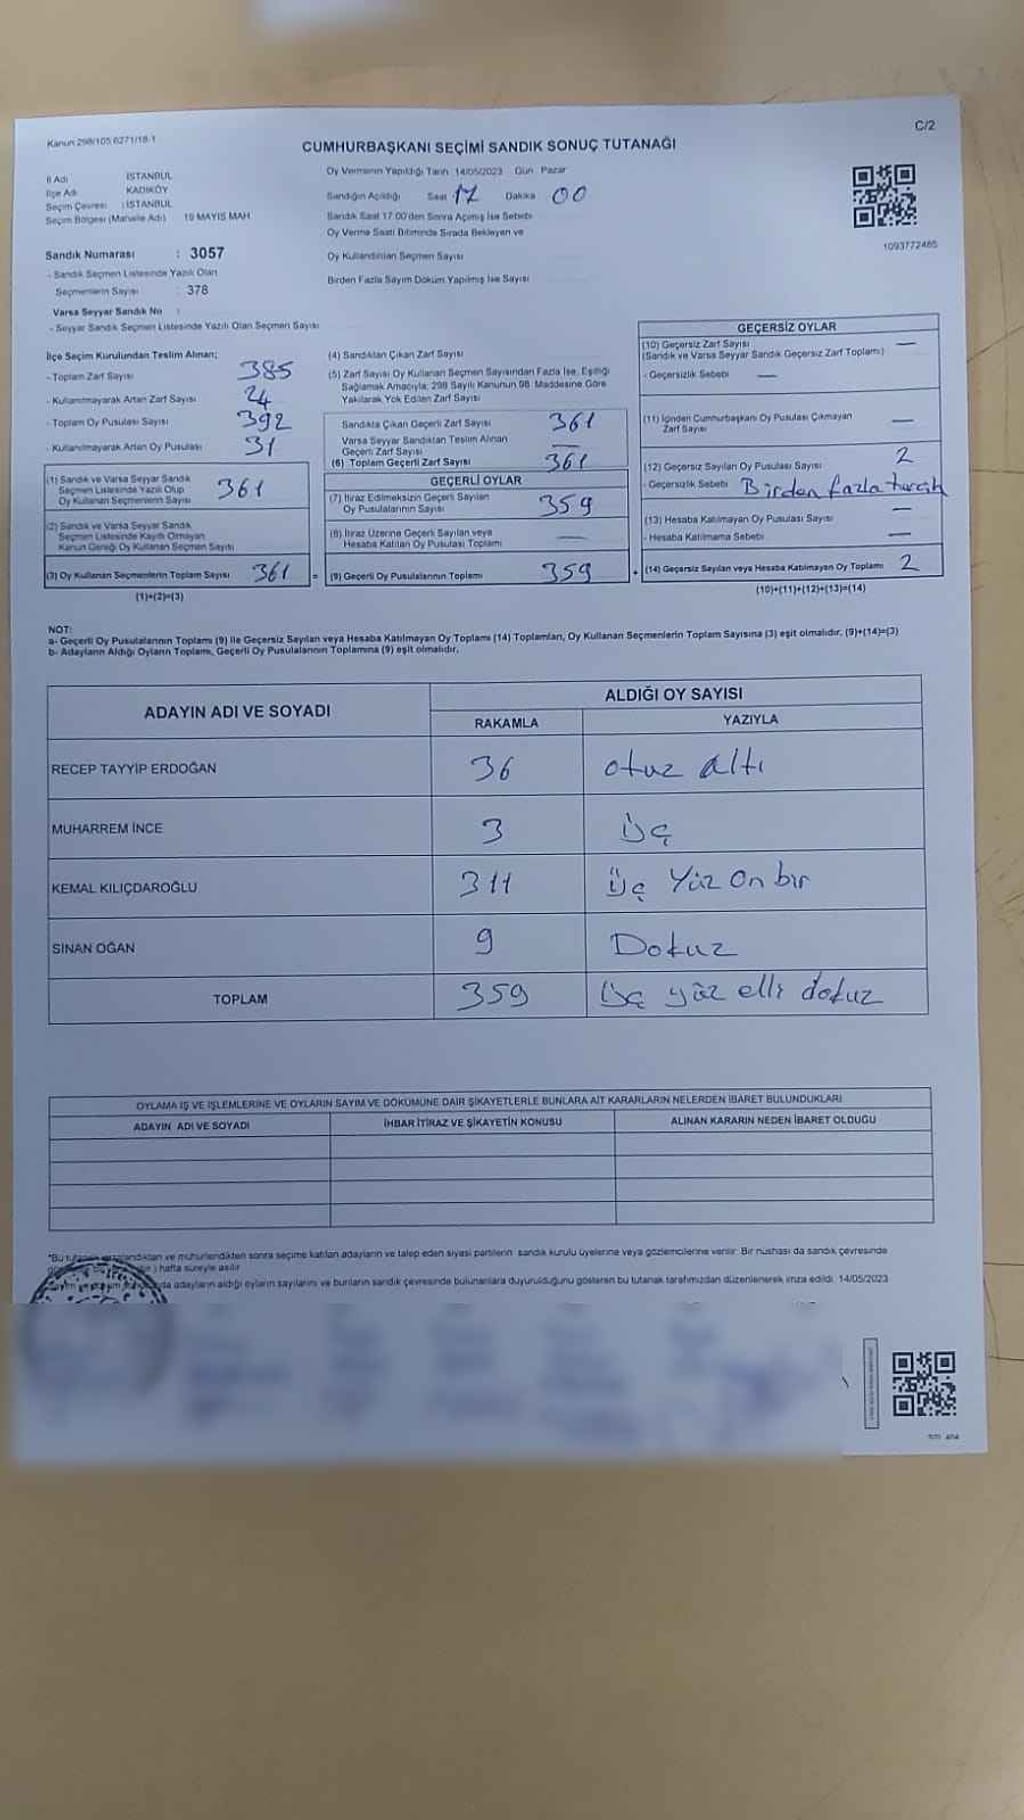 Kanun 298/105 6271/18-1
C/2
CUMHURBAŞKANI SEÇİMİ SANDIK SONUÇ TUTANAĞI
İl Adı İSTANBUL
İlçe Adı KADIKÖY
Seçim Çevresi : İSTANBUL
Seçim Bölgesi (Mahalle Adı) 19 MAYIS MAH
Sandık Numarası : 3057
- Sandık Seçmen Listesinde Yazılı Olan
Seçmenlerin Sayısı 378
Varsa Seyyar Sandık No :
- Seyyar Sandık Seçmen Listesinde Yazılı Olan Seçmen Sayısı
Oy Vermenin Yapıldığı Tarih 14/05/2023 Gün Pazar
Sandığın Açıldığı Saat 17 Dakika 00
Sandık Saat 17:00'den Sonra Açılmış İse Sebebi
Oy Verme Saati Bitiminde Sırada Bekleyen ve
Oy Kullandırılan Seçmen Sayısı
Birden Fazla Sayım Döküm Yapılmış İse Sayısı
1093772485
İlçe Seçim Kurulundan Teslim Alınan;
- Toplam Zarf Sayısı 385
- Kullanılmayarak Artan Zarf Sayısı 24
- Toplam Oy Pusulası Sayısı 392
- Kullanılmayarak Artan Oy Pusulası 31
(1) Sandık ve Varsa Seyyar Sandık
Seçmen Listesinde Yazılı Olup
Oy Kullanan Seçmenlerin Sayısı 361
(2) Sandık ve Varsa Seyyar Sandık
Seçmen Listesinde Kayıtlı Olmayan
Kanun Gereği Oy Kullanan Seçmen Sayısı
(3) Oy Kullanan Seçmenlerin Toplam Sayısı 361
(1)+(2)=(3)
(4) Sandıktan Çıkan Zarf Sayısı
(5) Zarf Sayısı Oy Kullanan Seçmen Sayısından Fazla İse, Eşitliği
Sağlamak Amacıyla, 298 Sayılı Kanunun 98. Maddesine Göre
Yakılarak Yok Edilen Zarf Sayısı
Sandıkta Çıkan Geçerli Zarf Sayısı 361
Varsa Seyyar Sandıktan Teslim Alınan
Geçerli Zarf Sayısı —
(6) Toplam Geçerli Zarf Sayısı 361
GEÇERLİ OYLAR
(7) İtiraz Edilmeksizin Geçerli Sayılan
Oy Pusulalarının Sayısı 359
(8) İtiraz Üzerine Geçerli Sayılan veya
Hesaba Katılan Oy Pusulası Toplamı —
= (9) Geçerli Oy Pusulalarının Toplamı 359
GEÇERSİZ OYLAR
(10) Geçersiz Zarf Sayısı —
(Sandık ve Varsa Seyyar Sandık Geçersiz Zarf Toplamı)
- Geçersizlik Sebebi —
(11) İçinden Cumhurbaşkanı Oy Pusulası Çıkmayan
Zarf Sayısı —
(12) Geçersiz Sayılan Oy Pusulası Sayısı 2
- Geçersizlik Sebebi Birden fazla tercih
(13) Hesaba Katılmayan Oy Pusulası Sayısı —
- Hesaba Katılmama Sebebi —
+ (14) Geçersiz Sayılan veya Hesaba Katılmayan Oy Toplamı 2
(10)+(11)+(12)+(13)=(14)
NOT:
a- Geçerli Oy Pusulalarının Toplamı (9) ile Geçersiz Sayılan veya Hesaba Katılmayan Oy Toplamı (14) Toplamları, Oy Kullanan Seçmenlerin Toplam Sayısına (3) eşit olmalıdır, (9)+(14)=(3)
b- Adayların Aldığı Oyların Toplamı, Geçerli Oy Pusulalarının Toplamına (9) eşit olmalıdır.
ADAYIN ADI VE SOYADI
ALDIĞI OY SAYISI
RAKAMLA YAZIYLA
RECEP TAYYİP ERDOĞAN 36 otuz altı
MUHARREM İNCE 3 üç
KEMAL KILIÇDAROĞLU 311 üç Yüz On bir
SİNAN OĞAN 9 Dokuz
TOPLAM 359 üç yüz elli dokuz
OYLAMA İŞ VE İŞLEMLERİNE VE OYLARIN SAYIM VE DÖKÜMÜNE DAİR ŞİKAYETLERLE BUNLARA AİT KARARLARIN NELERDEN İBARET BULUNDUKLARI
ADAYIN ADI VE SOYADI İHBAR İTİRAZ VE ŞİKAYETİN KONUSU ALINAN KARARIN NEDEN İBARET OLDUĞU
*Bu tutanak imzalandıktan ve mühürlendikten sonra seçime katılan adayların ve talep eden siyasi partilerin sandık kurulu üyelerine veya gözlemcilerine verilir. Bir nüshası da sandık çevresinde
hafta süreyle asılır
adayların aldığı oyların sayılarını ve bunların sandık çevresinde bulunanlara duyurulduğunu gösteren bu tutanak tarafımızdan düzenlenerek imza edildi. 14/05/2023